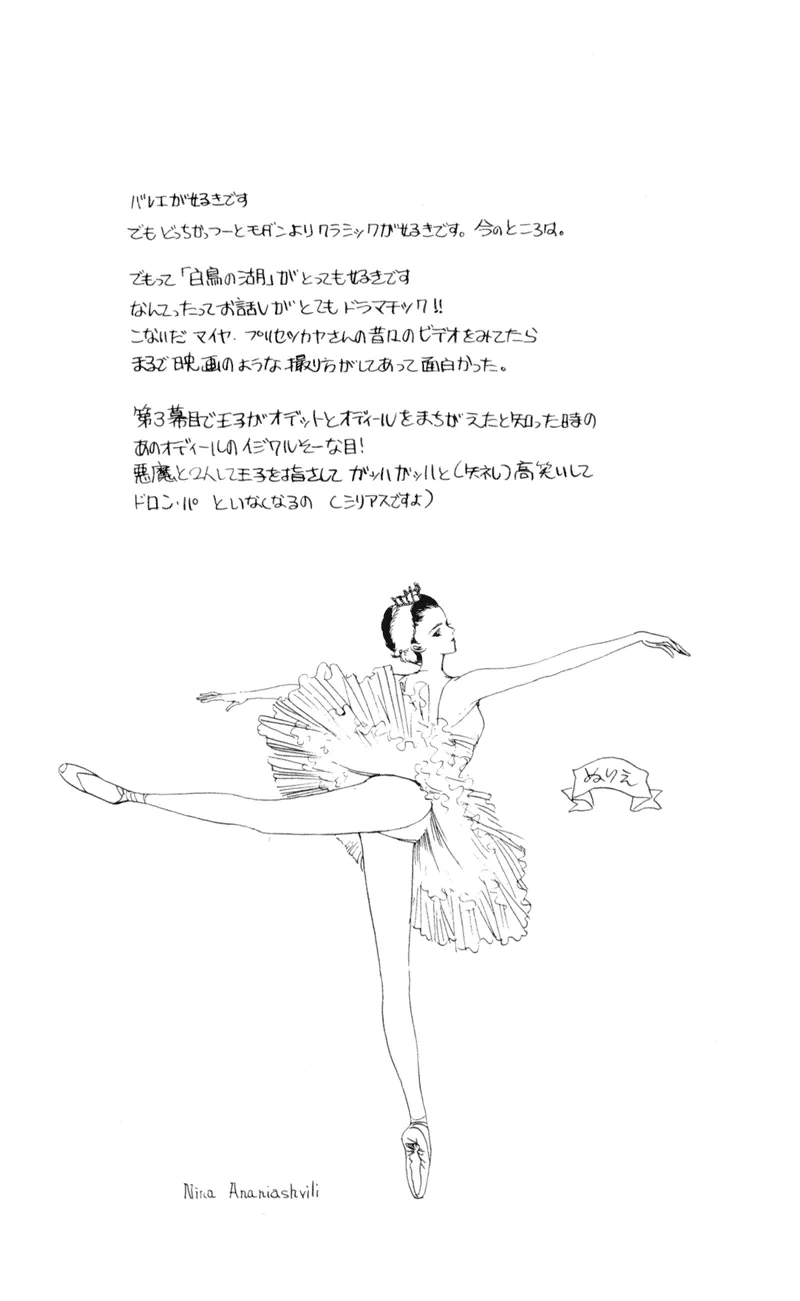 バレエが好きです
でもどっちかっつーとモダンよりクラシックが好きです。今のところは。
でもって「白鳥の湖」がとっても好きです
なんてったってお話しがとてもドラマチック!!
こないだ マイヤ・プリセツカヤさんの昔々のビデオをみてたら
まるで映画のような撮り方がしてあって面白かった。
第3幕目で王子がオデットとオディールをまちがえたと知った時の
あのオディールのイジワルそーな目!
悪魔と2人して王子を指さして ガッハガッハと(失礼)高笑いして
ドロン・パ といなくなるの (シリアスですよ)
ぬりえ
Nina Ananiashvili